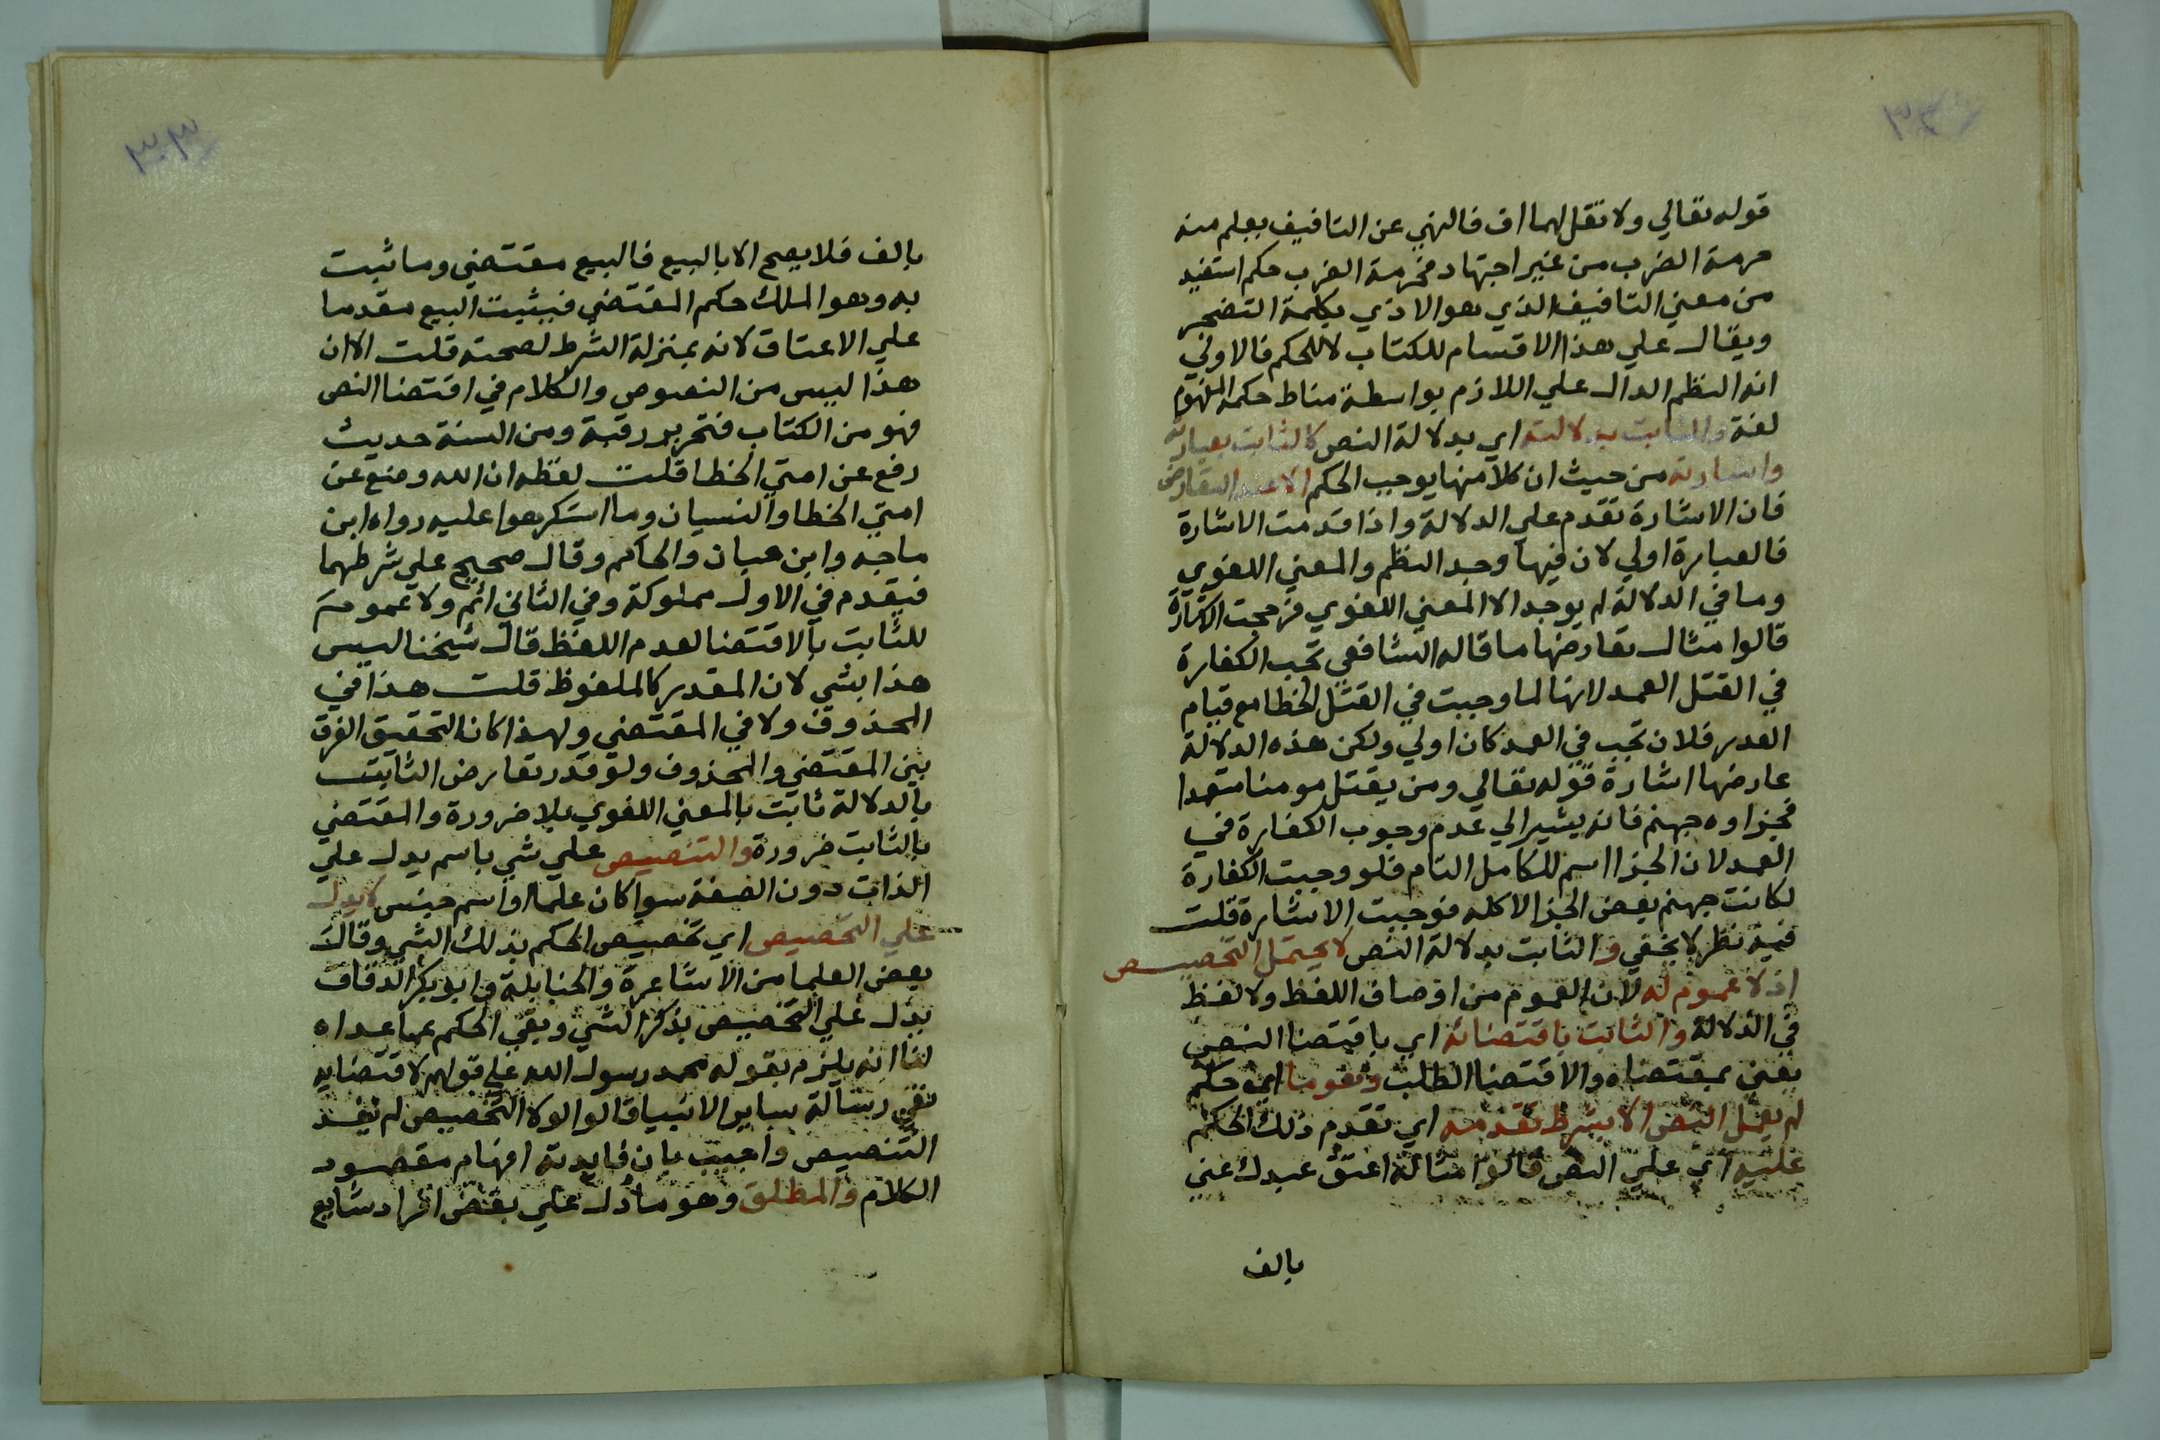 قوله تعالي ولا تقل لهما اف فالنهي عن التافيف يعلم منه
حرمة الضرب من غير اجتهاد فحرمة الضرب حكم استفيد
من معني التافيف الذي هو الاذي بكلمة التضجر
ويقال علي هذا الاقسام للكتاب لا للحكم فالاولي
انه النظم الدال علي اللازم بواسطة مناط حكمه المفهوم
لغة والثابت بدلالته اي بدلالة النص كالثابت بعبارته
واشارته من حيث ان كلا منها يوجب الحكم الا عند التعارض
فان الاشارة تقدم علي الدلالة واذا قدمت الاشارة
فالعبارة اولي لان فيها وجد النظم والمعني اللغوي
وما في الدلالة لم يوجد الا المعني اللغوي فرجحت الاشارة
قالوا مثال تعارضها ما قاله الشافعي تجب الكفارة
في القتل العمد لانها لما وجبت في القتل الخطا مع قيام
العدر فلان تجب في العمد كان اولي ولكن هذه الدلالة
عارضها اشارة قوله تعالي ومن يقتل مومنا متعمدا
فجزاوه جهنم فانه يشير الي عدم وجوب الكفارة في
العمد لان الجزا اسم للكامل التام فلو وجبت الكفارة
لكانت جهنم بعض الجزا لا كله فوجبت الاشارة قلت
فيه نظر لا يخفي والثابت بدلالة النص لا يحتمل التخصيص
اذ لا عموم له لان العموم من اوصاف اللفظ ولا لفظ
في الدلالة والثابت باقتضائه اي باقتضا النص
يعني بمقتضاه والاقتضا الطلب وهو ما اي حكم
لم يعمل النص الا بشرط تقدمه اي تقدم ذلك الحكم
عليه اي علي النص قالوا مثاله اعتق عبدك عني
بالف
٣٣
بالف فلا يصح الا بالبيع فالبيع مقتضي وما ثبت
به وهو الملك حكم المقتضي فيثبت البيع مقدما
علي الاعتاق لانه بمنزلة الشرط لصحته قلت الا ان
هذا ليس من النصوص والكلام في اقتضا النص
فهو من الكتاب فتحرير رقبة ومن السنة حديث
رفع عن امتي الخطا قلت لفظه ان الله وضع عن
امتي الخطا والنسيان وما استكرهوا عليه رواه ابن
ماجه وابن حبان والحاكم وقال صحيح علي شرطهما
فيقدم في الاول مملوكة وفي الثاني اثم ولا عموم
للثابت بالاقتضا لعدم اللفظ قال شيخنا ليس
هذا بشي لان المقدر كالملفوظ قلت هذا في
المحذوف ولا في المقتضي ولهذا كان التحقيق الفرق
بين المقتضي والمحذوف ولو قدر تعارض الثابت
بالدلالة ثابت بالمعني اللغوي بلا ضرورة والمقتضي
بالثابت ضرورة والتنصيص علي شي باسم يدل علي
الذات دون الصفة سوا كان علما او اسم جنس لا يدل
علي التخصيص اي تخصيص الحكم بذلك الشي وقال
بعض العلما من الاشاعرة والحنابلة وابو بكر الدقاق
يدل علي التخصيص بذكر الشي ونفي الحكم عما عداه
لنا انه يلزم بقوله محمد رسول الله علي قولهم لاقتضايه
نفي رسالة ساير الانبيا قالوا لولا التخصيص لم يفد
التنصيص واجيب بان فايدته افهام مقصود
الكلام والمطلق وهو ما دل علي بعض افراد شايع